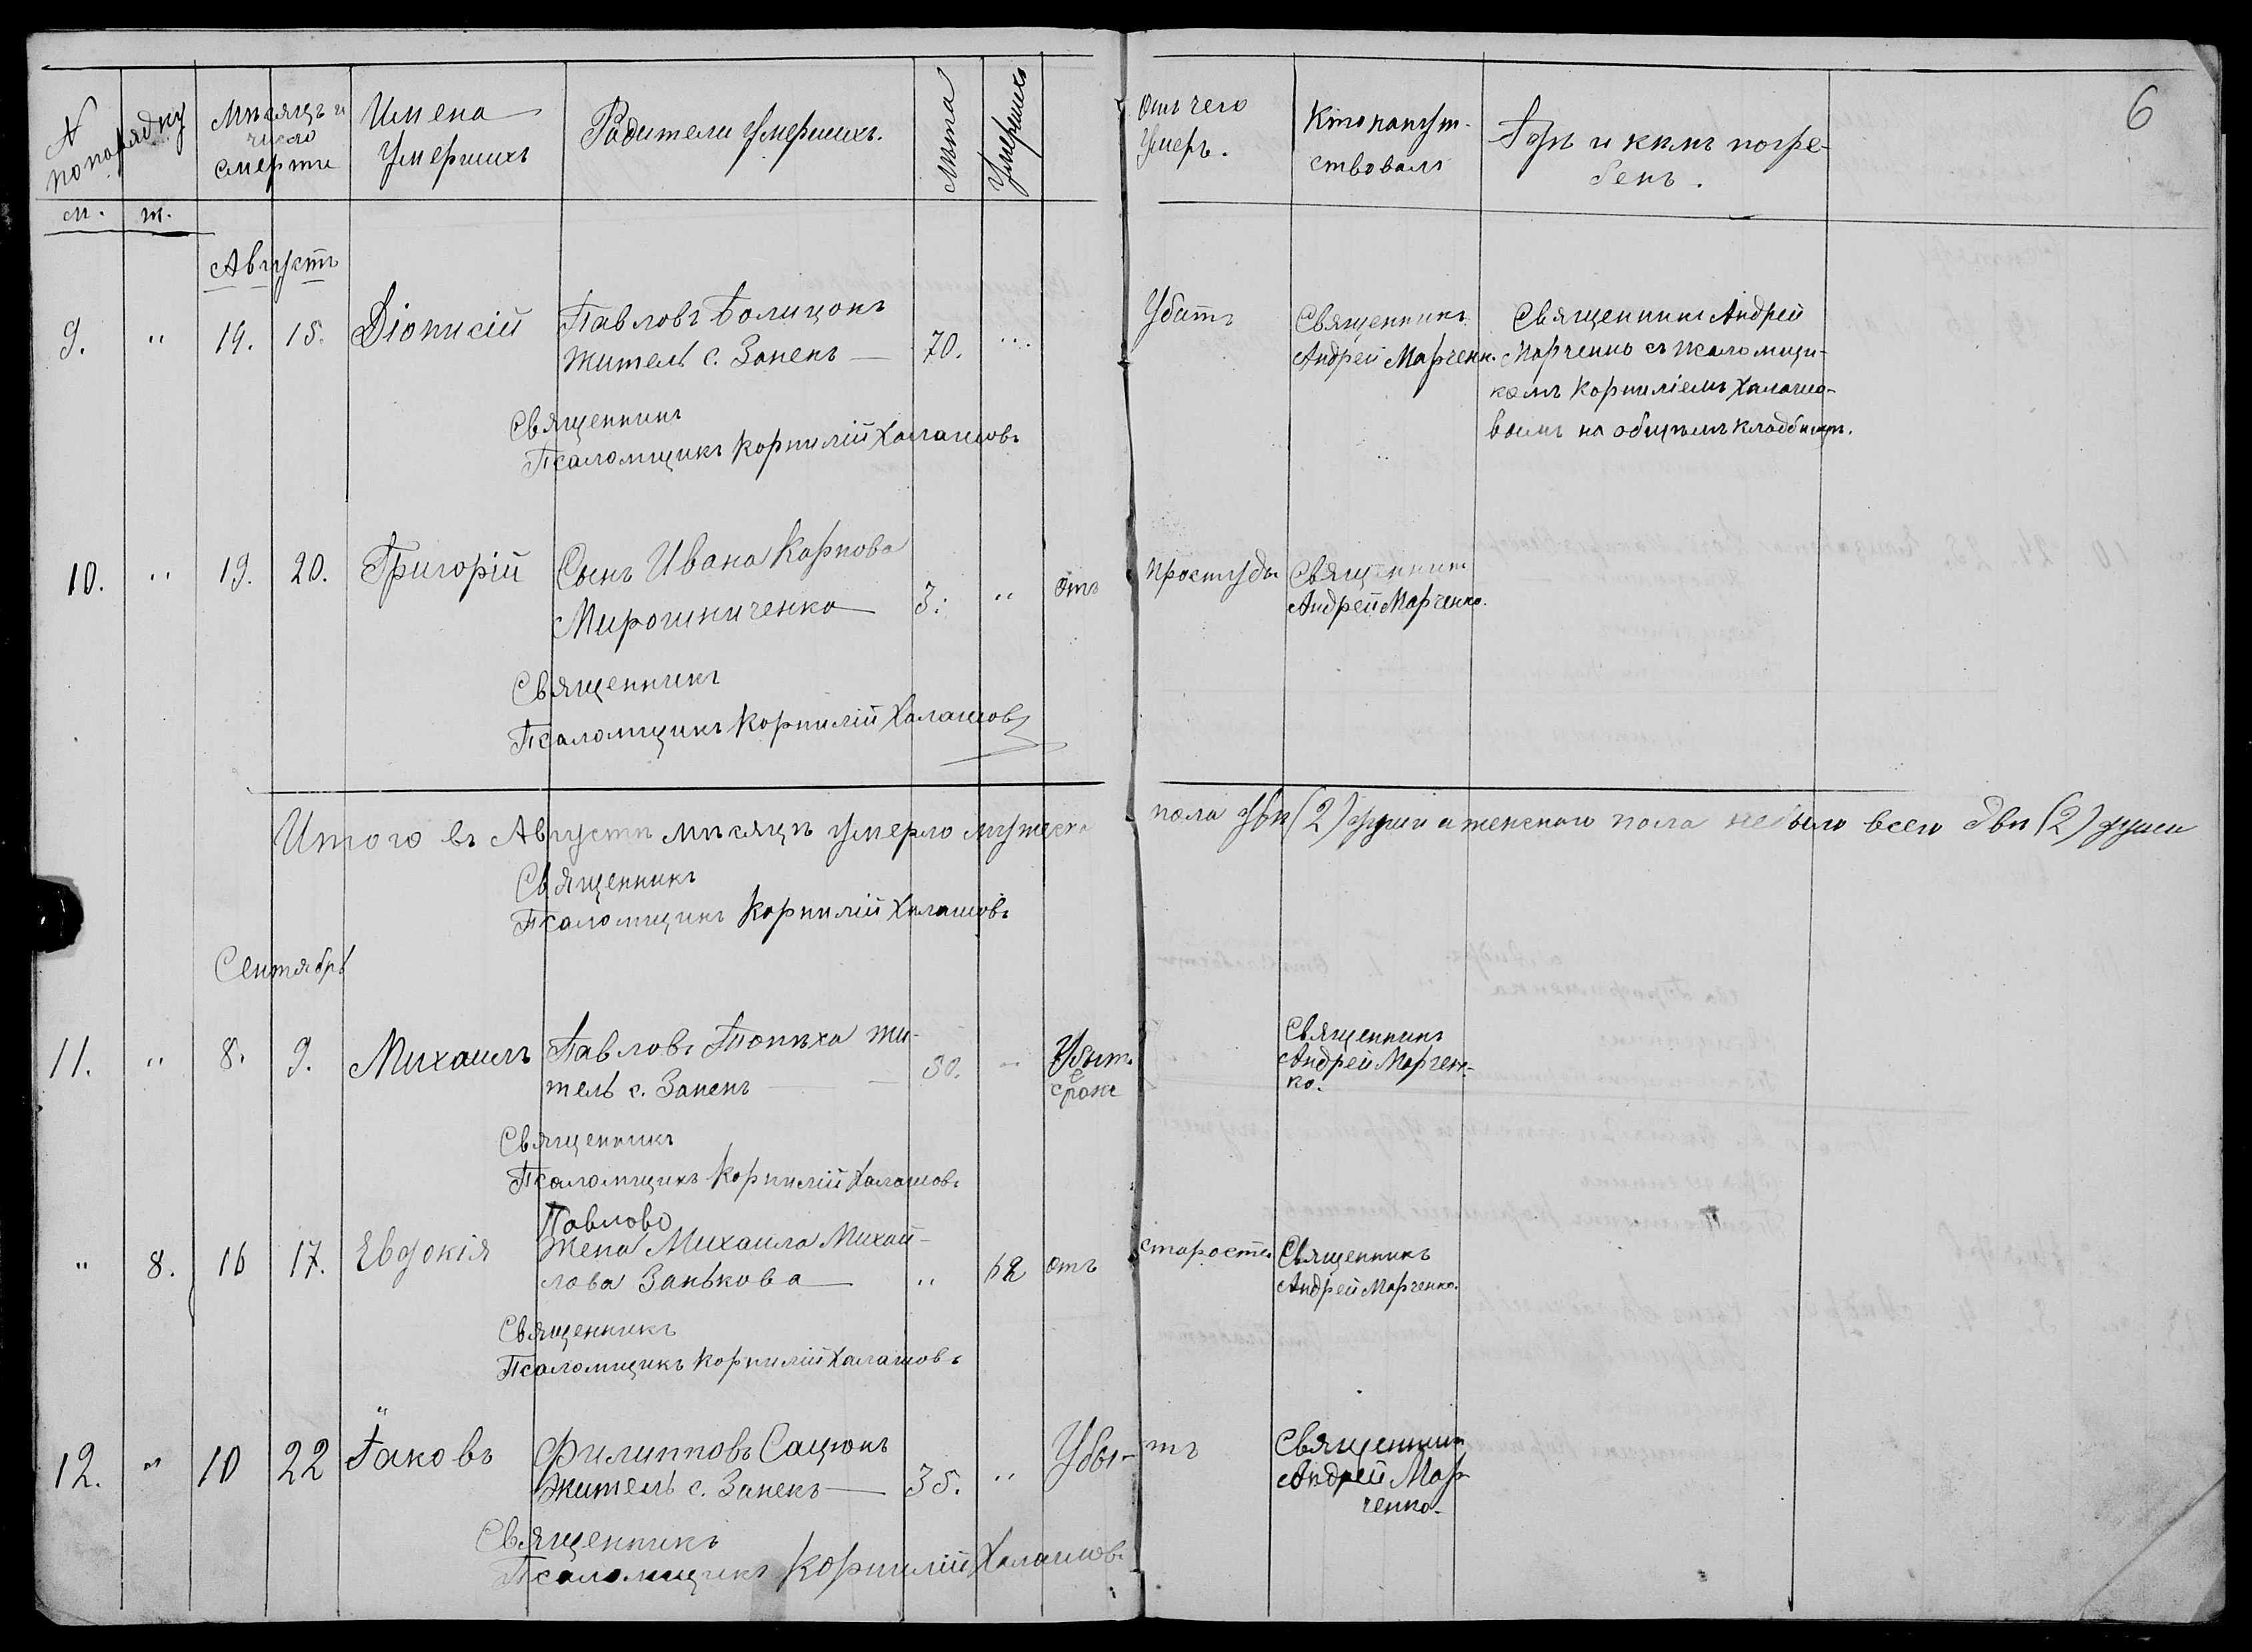 6
№ по порядку
м. ж.
Мѣсяцъ и число смерти
Имена Умершихъ
Родители Умершихъ.
Лѣта Умершихъ
Отъ чего Умеръ.
Кто напут-
ствовалъ
Гдѣ и кѣмъ погре-
бенъ.
Августъ
9. " 14. 15. Діонисій Павловъ Болицокъ
житель с. Занекъ — 70. "
Убитъ
Священникъ
Андрей Марченк.
Священникъ Андрей
Марченко съ псаломщи-
комъ Корниліемъ Халашо-
вымъ на общемъ кладбищѣ.
Священникъ
Псаломщикъ Корнилій Халашовъ
10. " 19. 20. Григорій Сынъ Ивана Карпова
Мирошниченка — 3. " отъ простуды
Священникъ
Андрей Марченко.
Священникъ
Псаломщикъ Корнилій Халашовъ
Итого въ Августѣ мѣсяцѣ умерло мужеска пола двѣ (2) души а женскаго пола небыло всего двѣ (2) души
Священникъ
Псаломщикъ Корнилій Халашовъ
Сентябрь
11. " 8. 9. Михаилъ Павловъ Попѣха жи-
тель с. Занекъ — 30. " Убит.
Священникъ
Андрей Марчен-
ко.
Священникъ
Псаломщикъ Корнилій Халашовъ
Павлова
" 8. 16 17. Евдокія Жена Михаила Михай-
лова Занькова — " 62 отъ старости
Священникъ
Андрей Марченко.
Священникъ
Псаломщикъ Корнилій Халашовъ
12. " 10 22 Іаковъ Филипповъ Сацюкъ
житель с. Занекъ — 35. " Убы-тъ
Священникъ
Андрей Мар-
ченко.
Священникъ
Псаломщикъ Корнилій Халашовъ